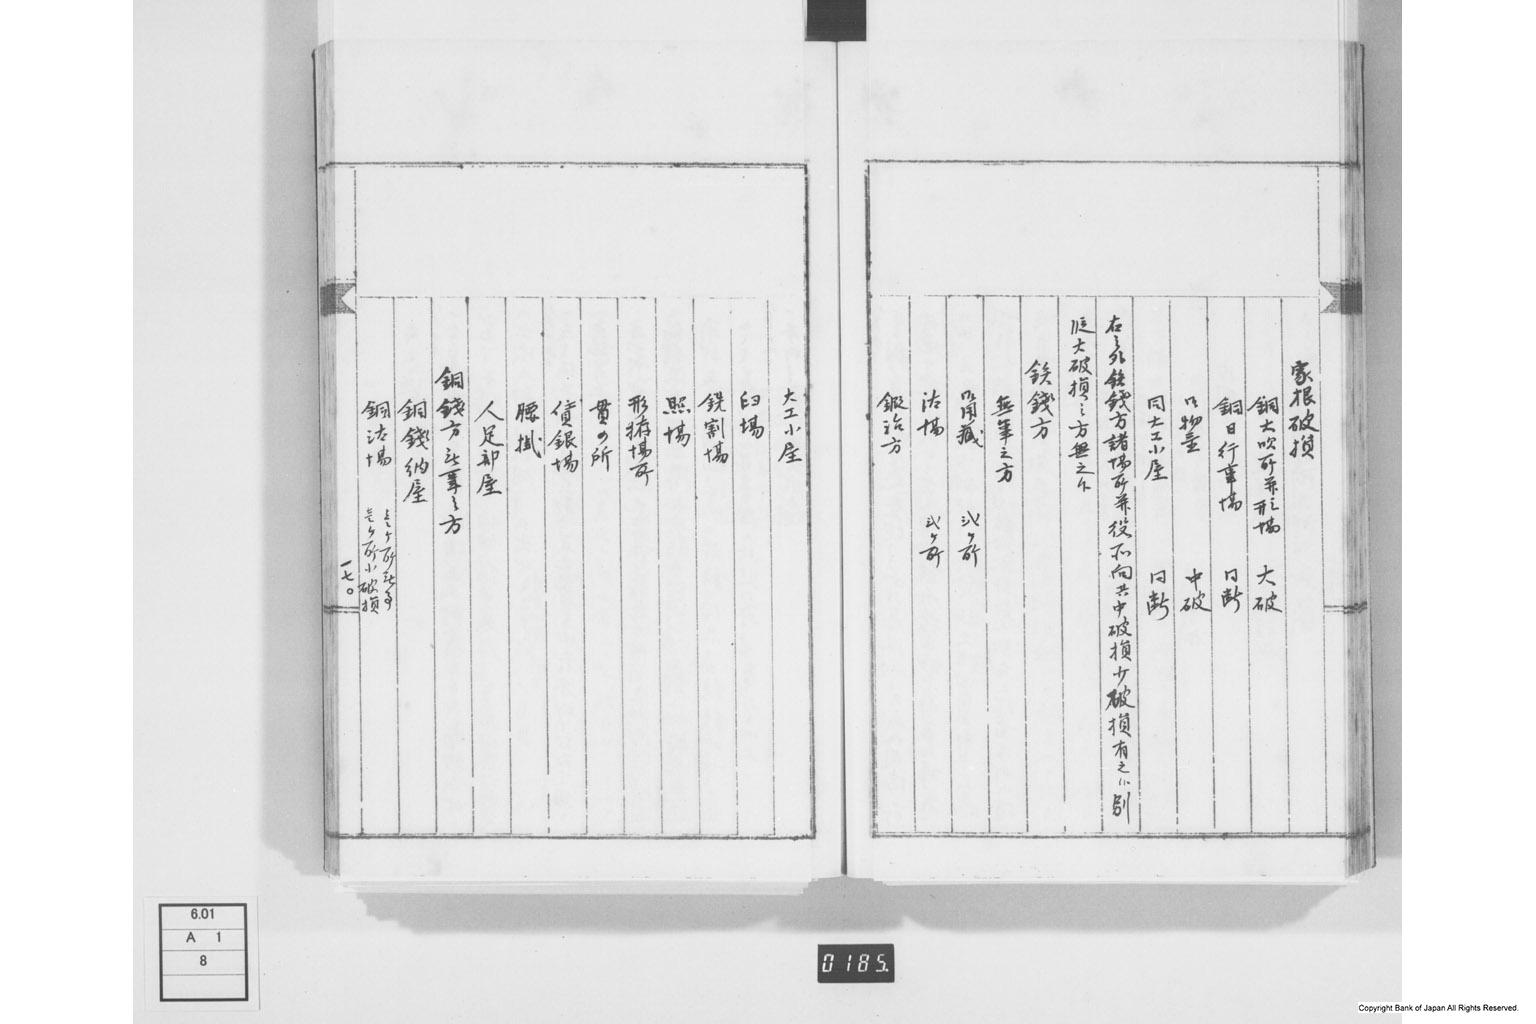 家根破損
銅大吹所并形場 大破
銅日行事場 同断
御物置 中破
同大工小屋 同断
右之外鉄銭方諸場所并役所向共中破損少破損有之候得共別
段大破損之方無之候
鉄銭方
無事之方
御用蔵 弐ヶ所
沽場 弐ヶ所
鍛冶方
大工小屋
臼場
銑割場
照場
形拵場所
貫の所
償銀場
腰掛
人足部屋
銅銭方無事之方
銅銭納屋
銅沽場 壱ヶ所無事
壱ヶ所小破損
一七〇
6.01
A 1
8
0185.
Copyright Bank of Japan All Rights Reserved.